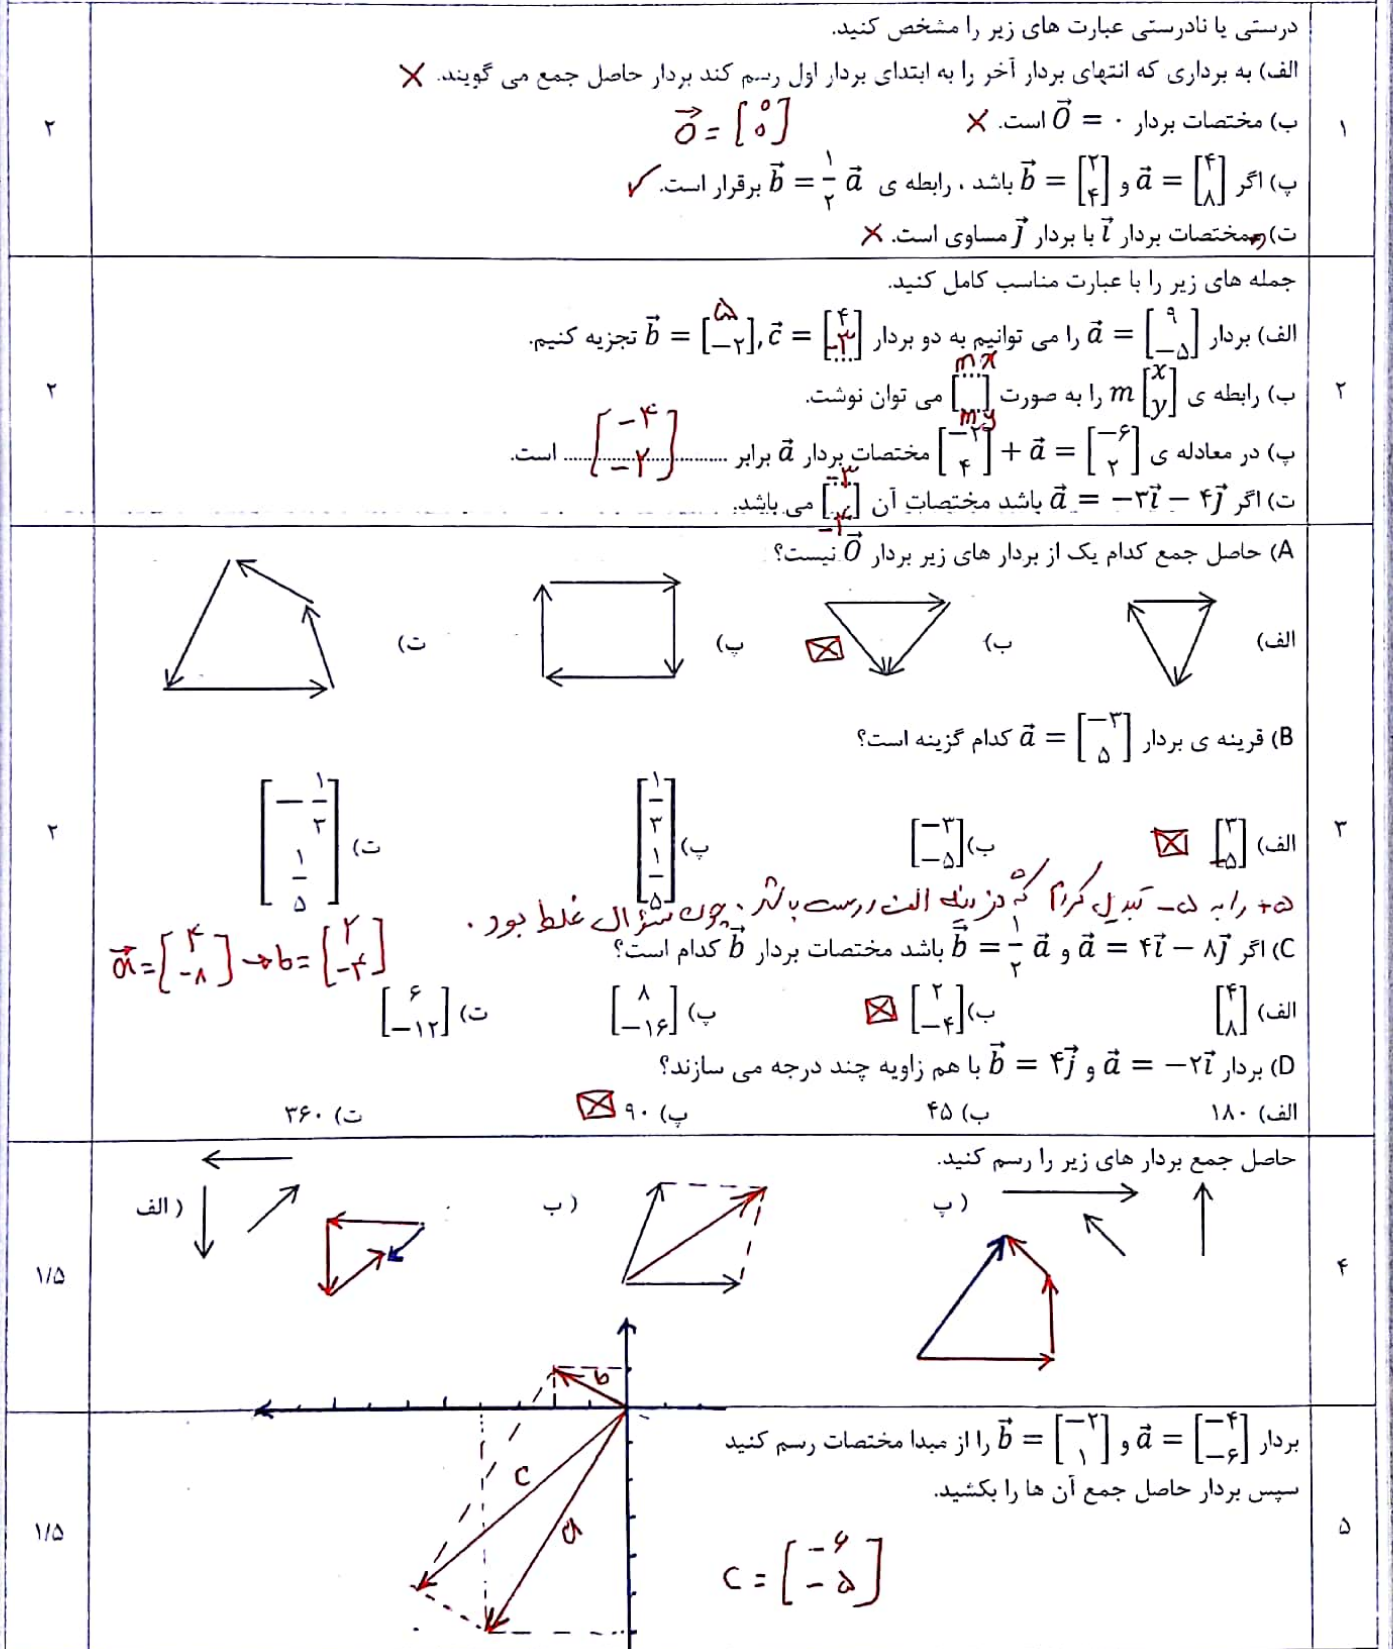 ۱
درستی یا نادرستی عبارت های زیر را مشخص کنید.
الف) به برداری که انتهای بردار آخر را به ابتدای بردار اول رسم کند بردار حاصل جمع می گویند. ×
ب) مختصات بردار O⃗ = ۰ است. × O⃗ = [۰ ۰]
پ) اگر a⃗ = [۴ ۸] و b⃗ = [۲ ۴] باشد ، رابطه ی b⃗ = ۱/۲ a⃗ برقرار است. ✓
ت) مختصات بردار i⃗ با بردار j⃗ مساوی است. ×
۲
۲
جمله های زیر را با عبارت مناسب کامل کنید.
الف) بردار a⃗ = [۹ −۵] را می توانیم به دو بردار b⃗ = [۵ −۲], c⃗ = [۴ −۳] تجزیه کنیم.
ب) رابطه ی m [x y] را به صورت [mx my] می توان نوشت.
پ) در معادله ی [−۲ ۴] + a⃗ = [−۶ ۲] مختصات بردار a⃗ برابر [−۴ −۲] است.
ت) اگر a⃗ = −۳i⃗ − ۴j⃗ باشد مختصات آن [−۳ −۴] می باشد.
۲
۳
A) حاصل جمع کدام یک از بردار های زیر بردار O⃗ نیست؟
الف) ب) ☒ پ) ت)
B) قرینه ی بردار a⃗ = [−۳ ۵] کدام گزینه است؟
الف) [۳ −۵] ☒ ب) [−۳ −۵] پ) [۱/۳ ۱/۵] ت) [−۱/۳ ۱/۵]
۵+ را به ۵− تبدیل کردم که گزینه الف درست باشد. چون سؤال غلط بود.
C) اگر a⃗ = ۴i⃗ − ۸j⃗ و b⃗ = ۱/۲ a⃗ باشد مختصات بردار b⃗ کدام است؟
a⃗ = [۴ −۸] → b = [۲ −۴]
الف) [۴ ۸] ب) [۲ −۴] ☒ پ) [۸ −۱۶] ت) [۶ −۱۲]
D) بردار a⃗ = −۲i⃗ و b⃗ = ۴j⃗ با هم زاویه چند درجه می سازند؟
الف) ۱۸۰ ب) ۴۵ پ) ۹۰ ☒ ت) ۳۶۰
۲
۴
حاصل جمع بردار های زیر را رسم کنید.
پ) ب) الف)
۱/۵
۵
بردار a⃗ = [−۴ −۶] و b⃗ = [−۲ ۱] را از مبدا مختصات رسم کنید
سپس بردار حاصل جمع آن ها را بکشید.
c = [−۶ −۵]
b
c
a
۱/۵